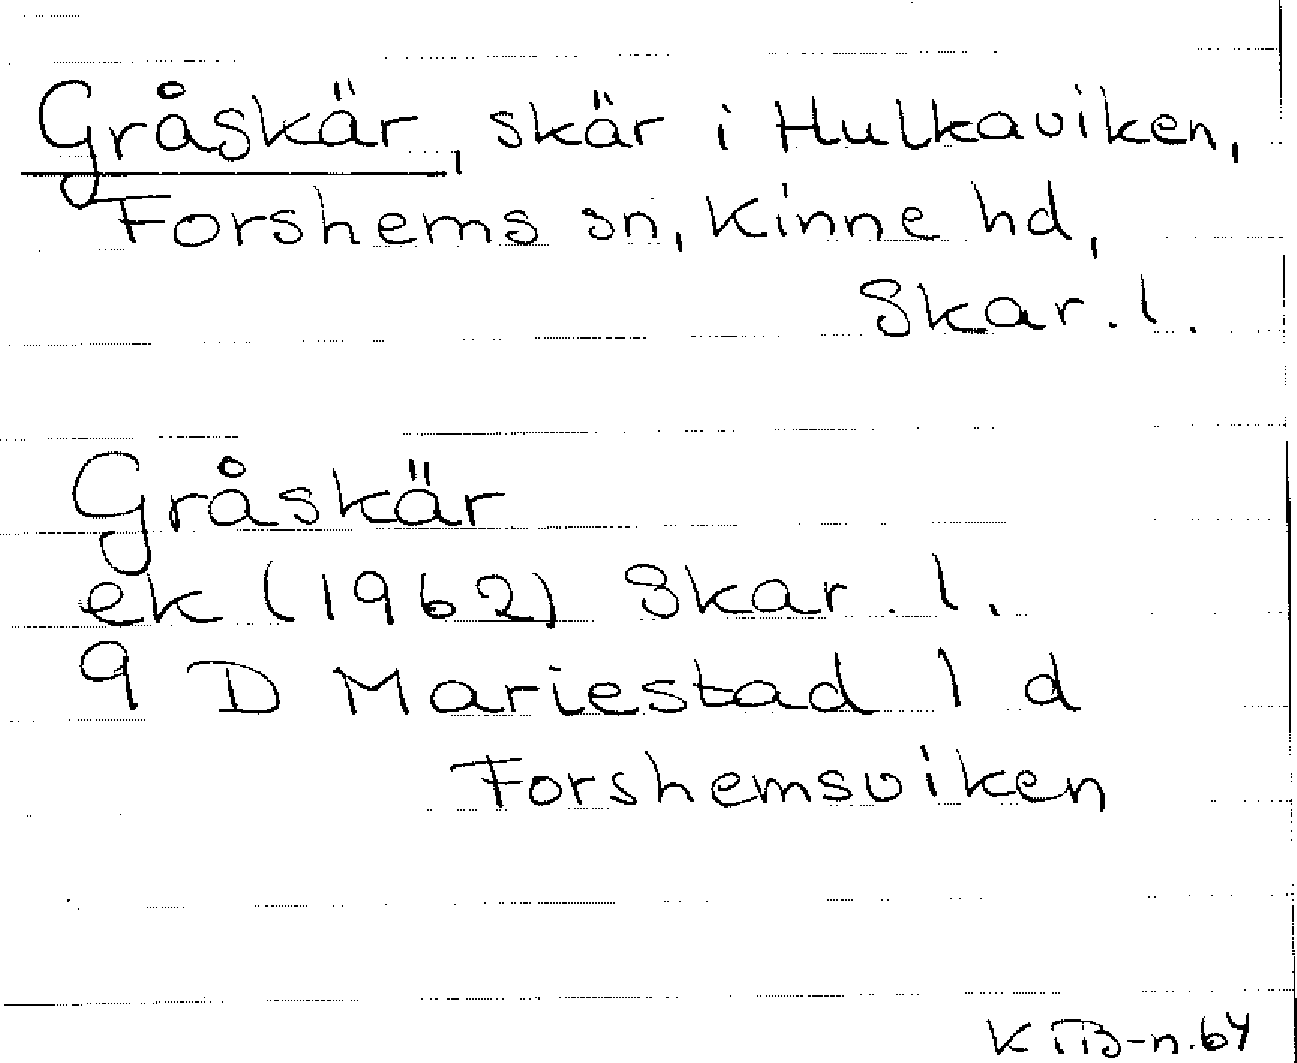 Gråskär, skär i Hulkaviken,
Forshems sn, Kinne hd,
Skar. l.
Gråskär
ek (1962) Skar. l.
9 D Mariestad 1 d
Forshemsviken
K MB-n.64